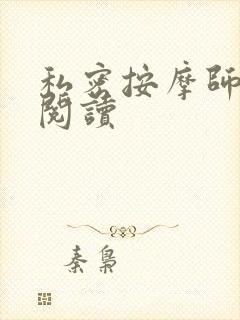 私密按摩師
閱讀
秦梟